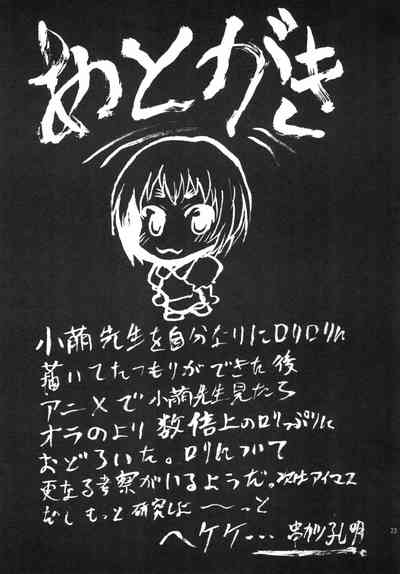 あとがき
小萌先生を自分なりにロリロリに
描いてたつもりができた後
アニメで小萌先生見たら
オラのより数倍上のロリっぷりに
おどろいた。ロリについて
更なる考察がいるようだ。次はアイマス
だし もっと研究しよ〜〜っと
ヘケケ… 串カツ孔明
23